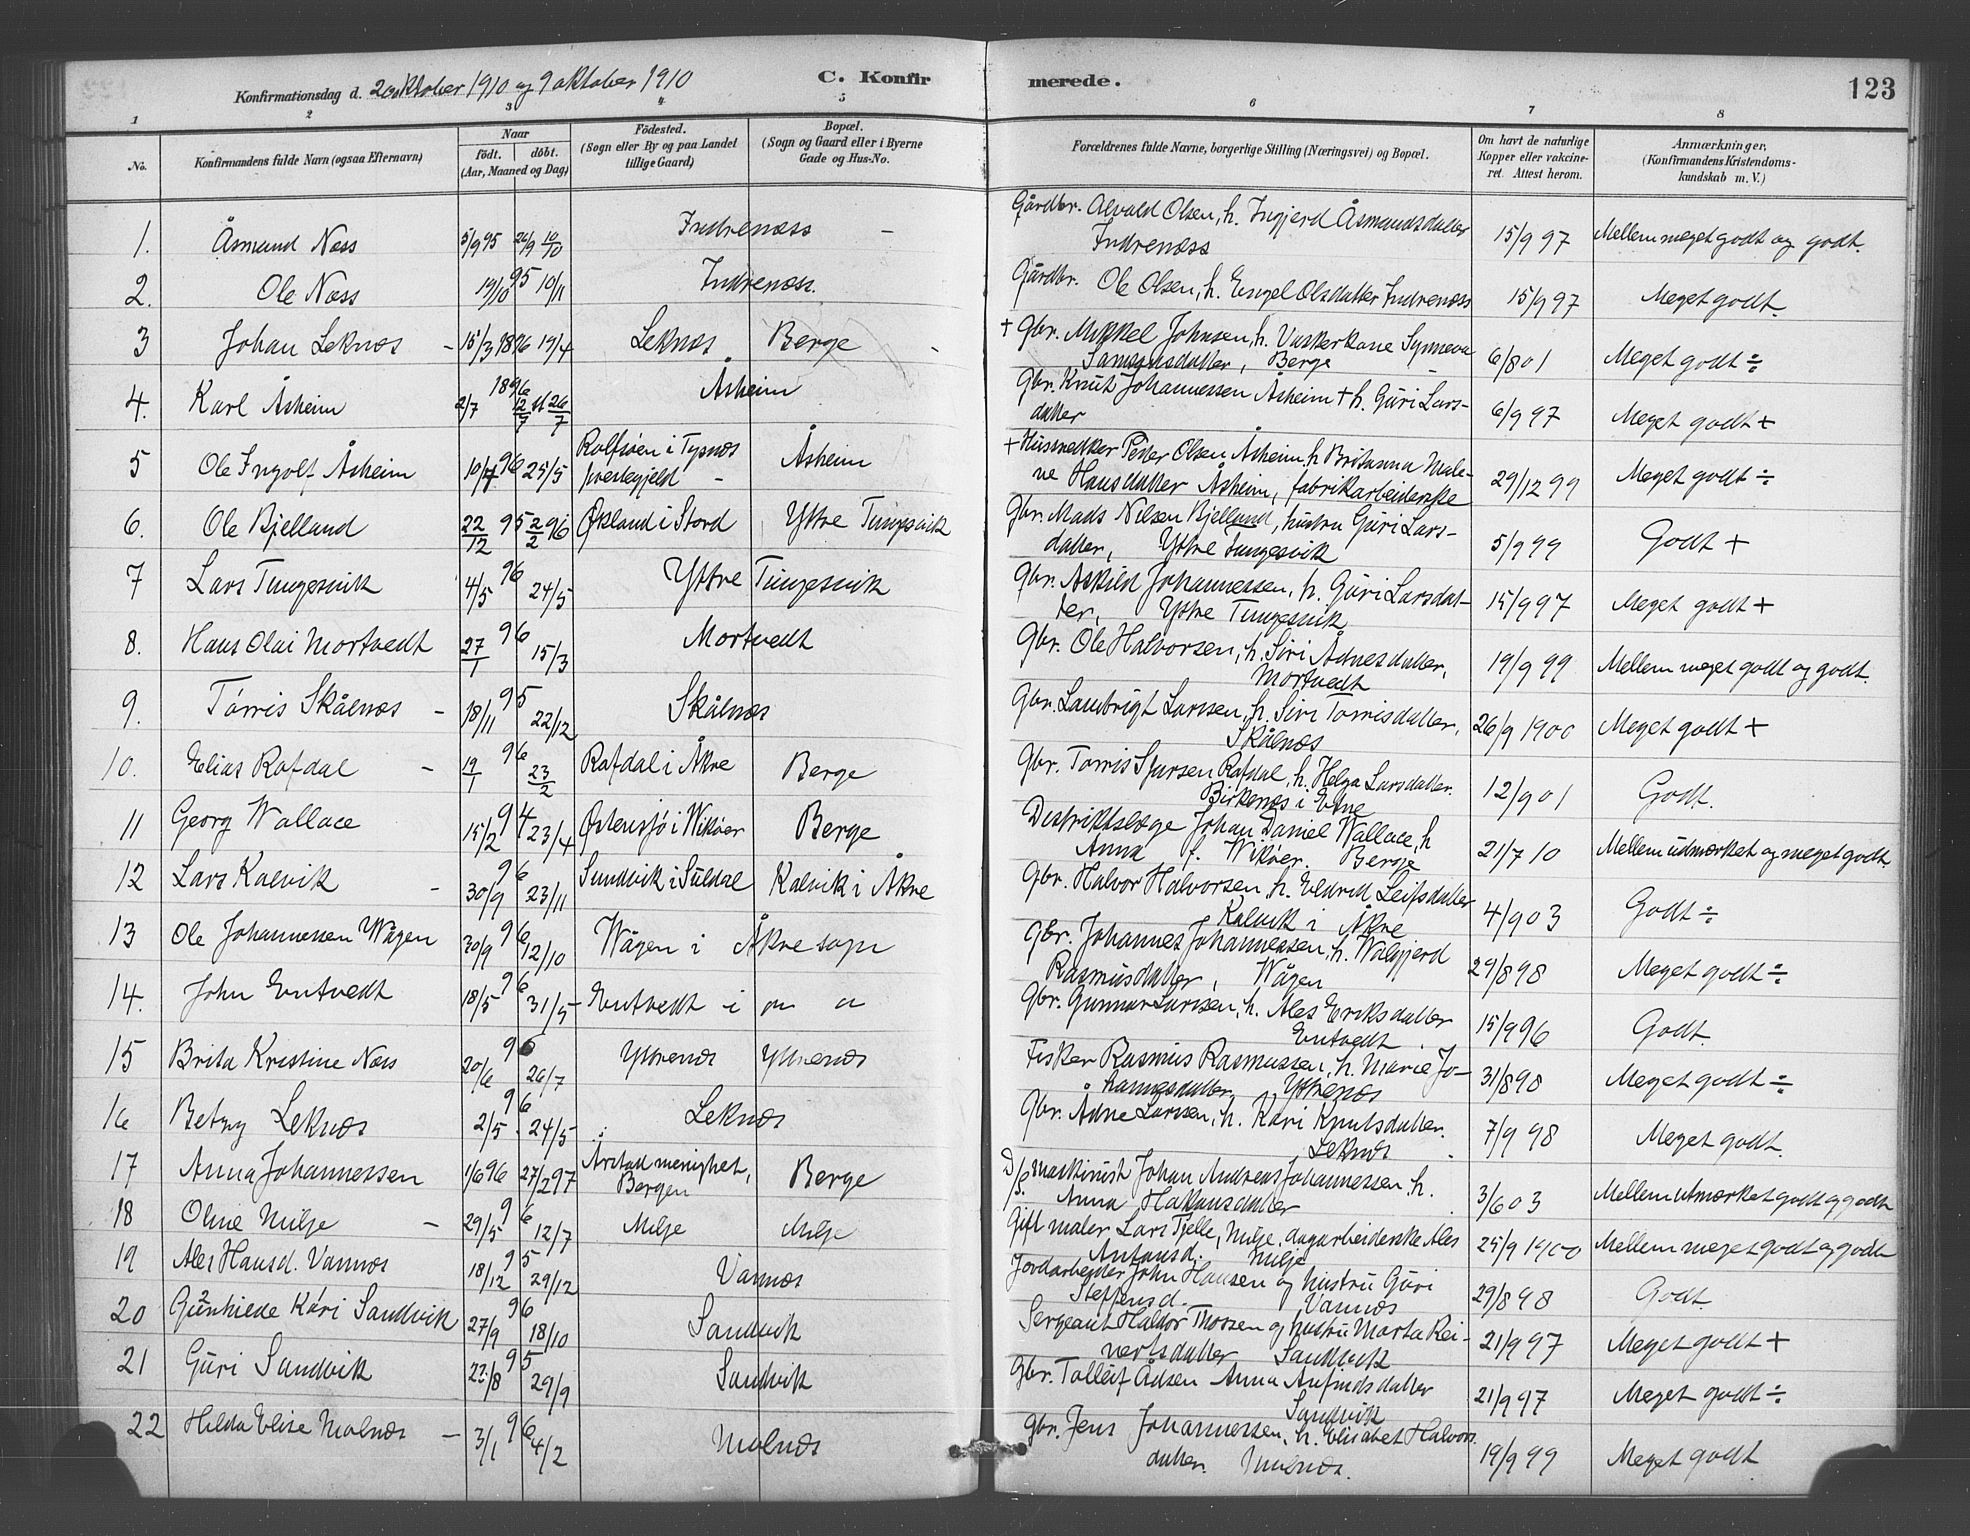 Konfirmationsdag d. 2 oktober 1910 og 9 oktober 1910 C. Konfirmerede. 123
1 2 3 4 5 6 7 8
No. Konfirmandens fulde Navn (ogsaa Efternavn) Naar født. døbt. (Aar, Maaned og Dag) Födested. (Sogn eller By og paa Landet tillige Gaard) Bopæl. (Sogn og Gaard eller i Byerne Gade og Hus-No. Forældrenes fulde Navne, borgerlige Stilling (Næringsvei) og Bopæl. Om havt de naturlige Kopper eller vakcineret. Attest herom. Anmærkninger, (Konfirmandens Kristendomskundskab m. V.)
1. Åsmund Næss 5/9 95 Indrenæss - Gårdbr. Alvald Olsen, h. Ingjerd Åsmundsdatter 15/9 97 Mellem meget godt og godt.
Indrenæss
2. Ole Næss 19/10 95 10/11 Indrenæss. Gårdbr. Ole Olsen, h. Engel Olsdatter Indrenæss 15/9 97 Meget godt.
3 Johan Leknæs - 15/3 1896 19/4 Leknæs Berge - + Gbr. Mikkel Johnsen, h. Vaskerkone Synneva 6/8 01 Meget godt ÷
Samsonsdatter, Berge
4. Karl Åsheim 2/7 1896 12/7 st 26/7 Åsheim Gbr. Knut Johannessen Åsheim + h. Guri Lars- 6/9 97 Meget godt +
datter
5 Ole Ingolf Åsheim 10/4 96 25/5 Rolfsøen i Tysnæs præstegjeld - Åsheim + Hussnedker Peder Olsen Åsheim, h Britanna Male- 29/12 99 Meget godt ÷
ne Hansdatter Åsheim, fabrikarbeiderske
6. Ole Bjelland 22/12 95 2/2 96 Økland i Stord Yttre Tungesvik Gbr. Mads Nilsen Bjelland, hustru Guri Lars- 5/9 99 Godt +
datter, Yttre Tungesvik
7 Lars Tungesvik 4/5 96 24/5 Yttre Tungesvik Gbr. Askild Johannessen, h. Guri Larsdat- 15/9 97 Meget godt +
ter, Yttre Tungesvik
8. Hans Olai Mortvedt 27/1 96 15/3 Mortvedt Gbr. Ole Halvorsen, h. Siri Ådnesdatter, 19/9 99 Mellem meget godt og godt.
Mortvedt
9. Tørris Skålnæs - 18/11 95 22/12 Skålnæs Gbr. Lambrigt Larssen, h. Siri Tørrisdatter, 26/9 1900 Meget godt +
Skålnæs
10. Elias Rafdal - 19/1 96 23/2 Rafdal i Åkre Berge Gbr. Tørris Sjursen Rafdal, h. Helga Larsdatter. 12/9 01 Godt.
Birkenæs i Etne
11 Georg Wallace 15/2 94 23/4 Østensjø i Wikøer Berge Distriktslæge Johan Daniel Wallace, h 21/7 10 Mellem udmærket og meget godt.
Anna f. Wikøer. Berge
12 Lars Kalvik - 30/9 96 23/11 Sundvik i Suldal Kalvik i Åkre Gbr. Halvor Halvorsen h. Eldrid Leifsdatter 4/9 03 Godt ÷
Kalvik i Åkre
13 Ole Johannessen Wågen 30/9 96 12/10 Wågen i Åkre sogn Gbr. Johannes Johannessen, h. Walgjerd 29/8 98 Meget godt ÷
Rasmusdatter, Wågen
14. John Entvedt 18/5 96 31/5 Entvedt i " " Gbr. Gunnar Larssen, h. Ales Eriksdatter 15/9 96 Godt.
Entvedt
15 Brita Kristine Næss 20/6 96 26/7 Yttrenæs Yttrenæs Fisker Rasmus Rasmussen, h. Marie Jo- 31/8 98 Meget godt ÷
hannesdatter Yttrenæs
16 Betzy Leknæs 2/5 96 24/5 Leknæs Gbr. Ådne Larssen, h. Kari Knutsdatter. 7/9 98 Meget godt.
Leknæs
17 Anna Johannessen 1/6 96 27/2 97 Årstad menighet, Bergen Berge D/S. maskinist Johan Andreas Johannessen h. 3/6 03 Mellem utmærket godt og godt
Anna Hakonsdatter
18 Oline Milje - 29/5 96 12/7 Milje Milje Gift maler Lars Tjelle, Milje, dagarbeiderske Ales 25/9 1900 Mellem meget godt og godt
Antonsd. Milje
19 Ales Hansd. Vannes 18/12 95 29/12 Vannes Jordarbeider John Hansen og hustru Guri 29/8 98 Godt.
Steffensd. Vannes
20 Gunhilde Kari Sandvik 27/9 96 18/10 Sandvik Sergeant Haldor Thossen og hustru Marta Rei- 21/9 97 Meget godt +
nertsdatter Sandvik
21 Guri Sandvik 22/8 95 29/9 Sandvik Gbr. Tolleif Ådsen Anna Anfindsdatter 21/9 97 Meget godt ÷
Sandvik
22 Hilda Elise Molnæs - 3/1 96 4/2 Molnæs Gbr. Jens Johannessen, h. Elisabet Halvors 19/9 99 Meget godt
datter. Molnæs.